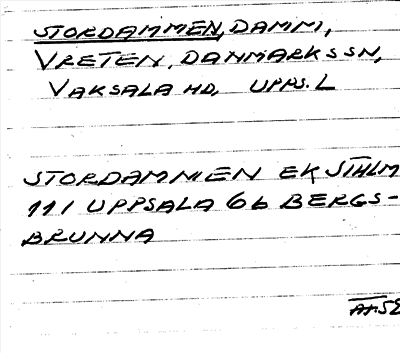 STORDAMMEN, DAMM,
VRETEN, DANMARKS SN,
VAKSALA HD, UPPS. L
STORDAMMEN EK STHLM
111 UPPSALA 6b BERGS-
BRUNNA